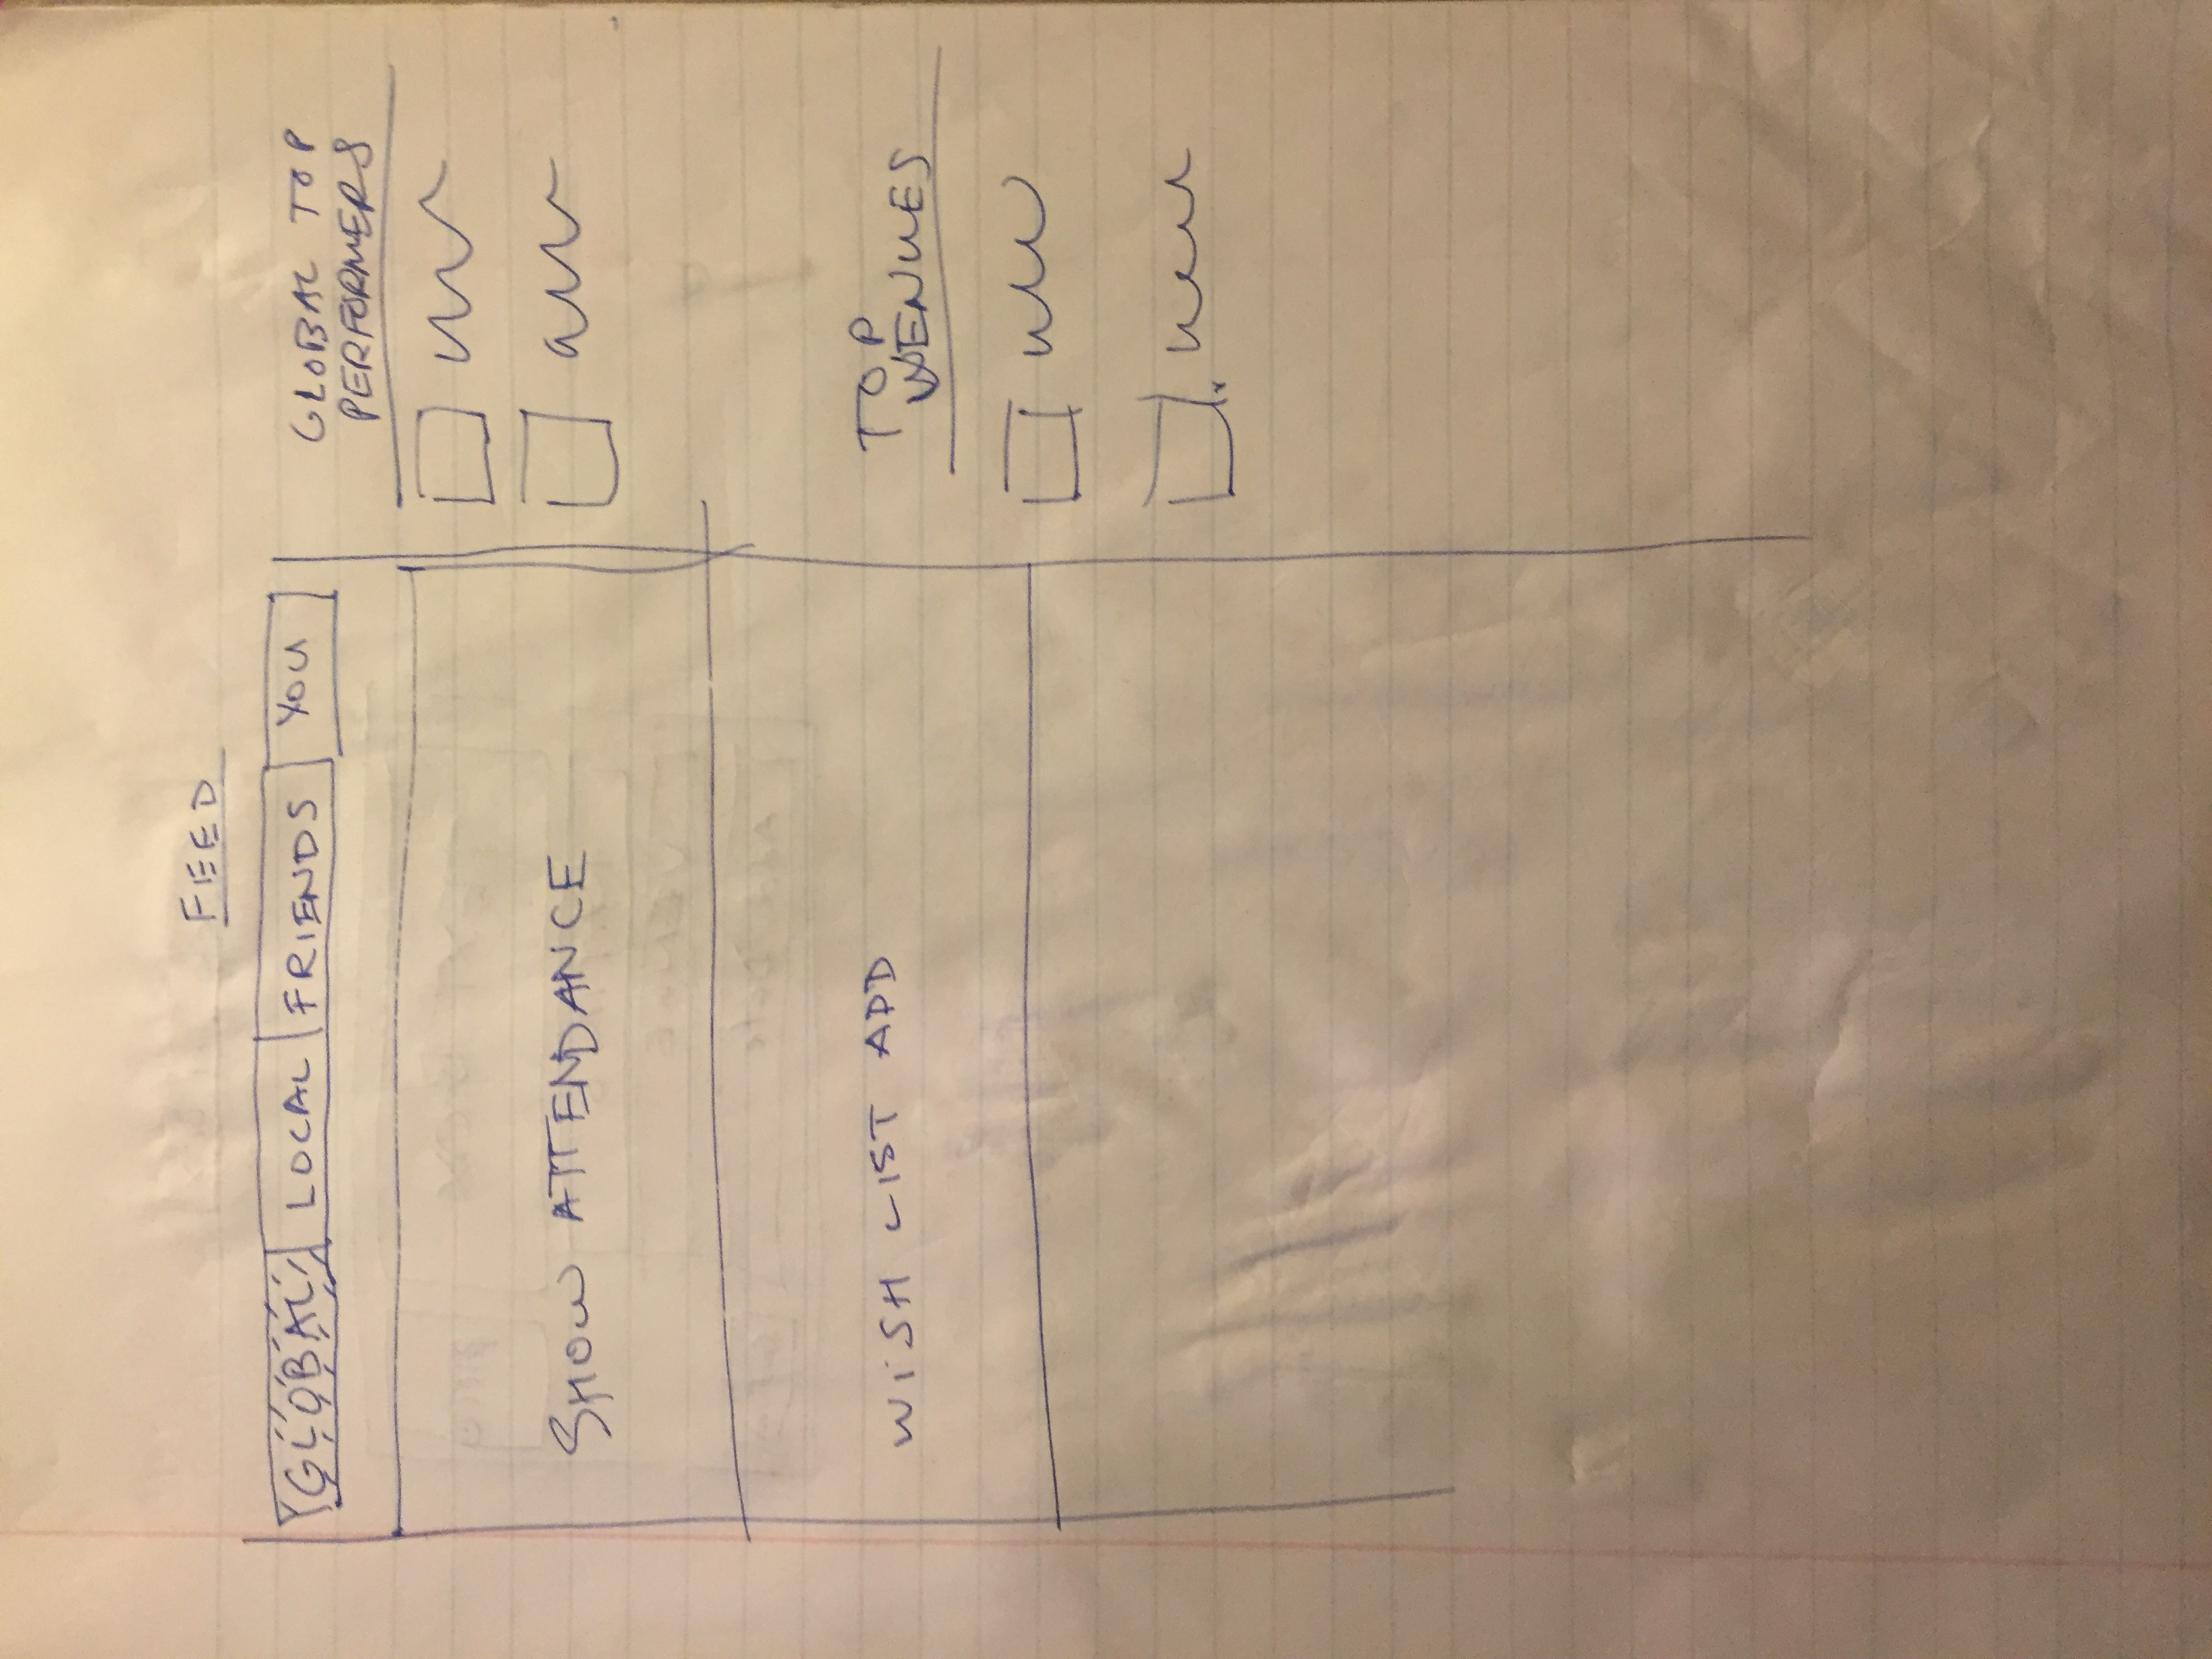 FEED
GLOBAL LOCAL FRIENDS YOU
SHOW ATTENDANCE
WISH LIST ADD
GLOBAL TOP
PERFORMERS
TOP
VENUES